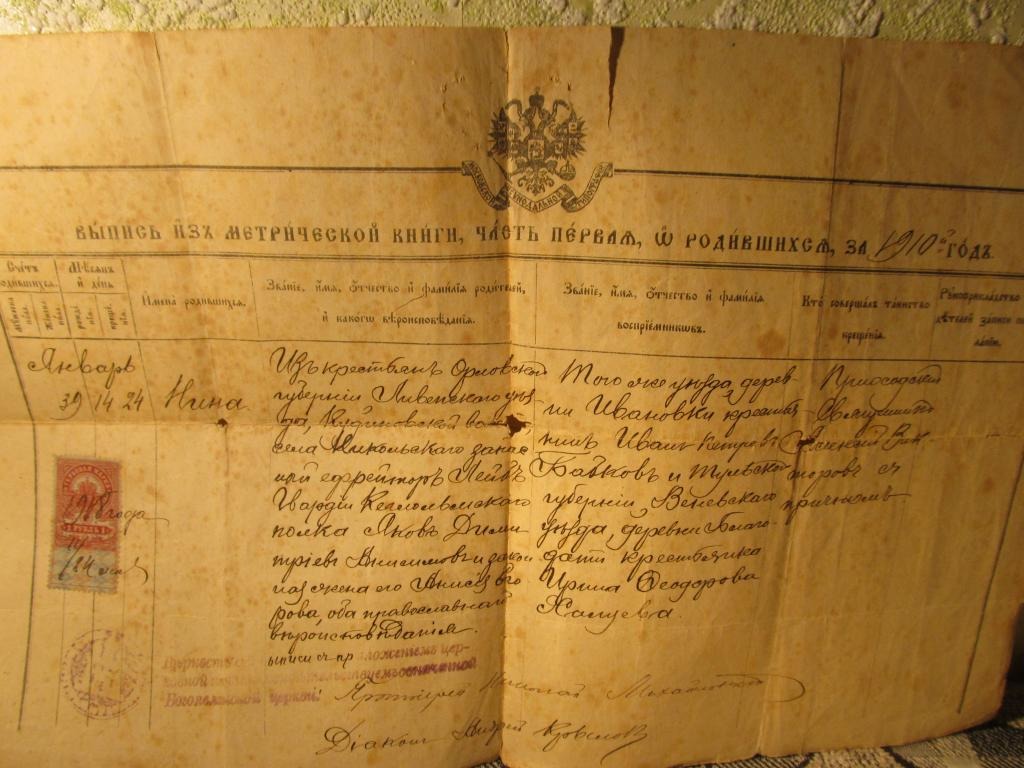 МОСКОВСКОЙ СИНОДАЛЬНОЙ ТИПОГРАФІИ
ВЫПИСЬ ИЗЪ МЕТРИЧЕСКОЙ КНИГИ, ЧАСТЬ ПЕРВАЯ, Ѡ РОДИВШИХСЯ, ЗА 1910й ГОДЪ
Счетъ родившихся.
Мѣсяцъ и день
Имена родившихся.
Званіе, имя, отчество и фамилія родителей,
и какого вѣроисповѣданія.
Званіе, имя, отчество и фамилія
воспріемниковъ.
Кто совершалъ таинство
крещенія.
Рукоприкладство
дѣтелей записи по
Январь
39 14 24
Нина
Изъ крестьянъ Орловской
губерніи Ливенскаго уѣз
да, волос
села Никольскаго запас
ный ефрейторъ Лейбъ
Гвардіи Кексгольмскаго
полка Яковъ Дими
тріевъ Анисимовъ и закон
ная жена его Его
рова, оба православнаго
вѣроисповѣданія.
Того же уѣзда, дерев
ни Ивановки, крестья
нинъ Иванъ Петровъ
Бабковъ и Тульской
губерніи, Веневскаго
уѣзда, деревни Благо
дати крестьянка
Ирина Ѳеодорова
Приходскій
Священникъ
Алексій Вик
торовъ съ
причтомъ
1918 года
1 РУБЛЬ 1
24
выписи съ приложеніемъ цер
ковной печати означенной
Богоявленской церкви:
Протоіерей Николай
Діаконъ Андрей